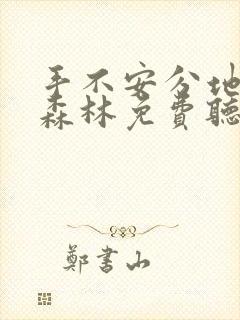 手不安分地
森林免费聽
鄭書山